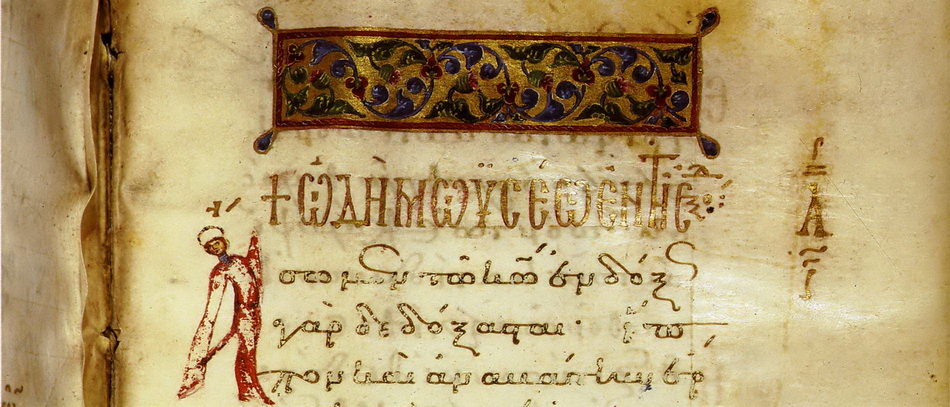 + ὠδὴ μωϋσέωσ ἐν τῇ ἐξόδ
Ἄσωμεν τῶ κω ἐνδόξωσ
γὰρ δεδόξασται· ἵπ
πον καὶ ἀναβάτην ἔρ